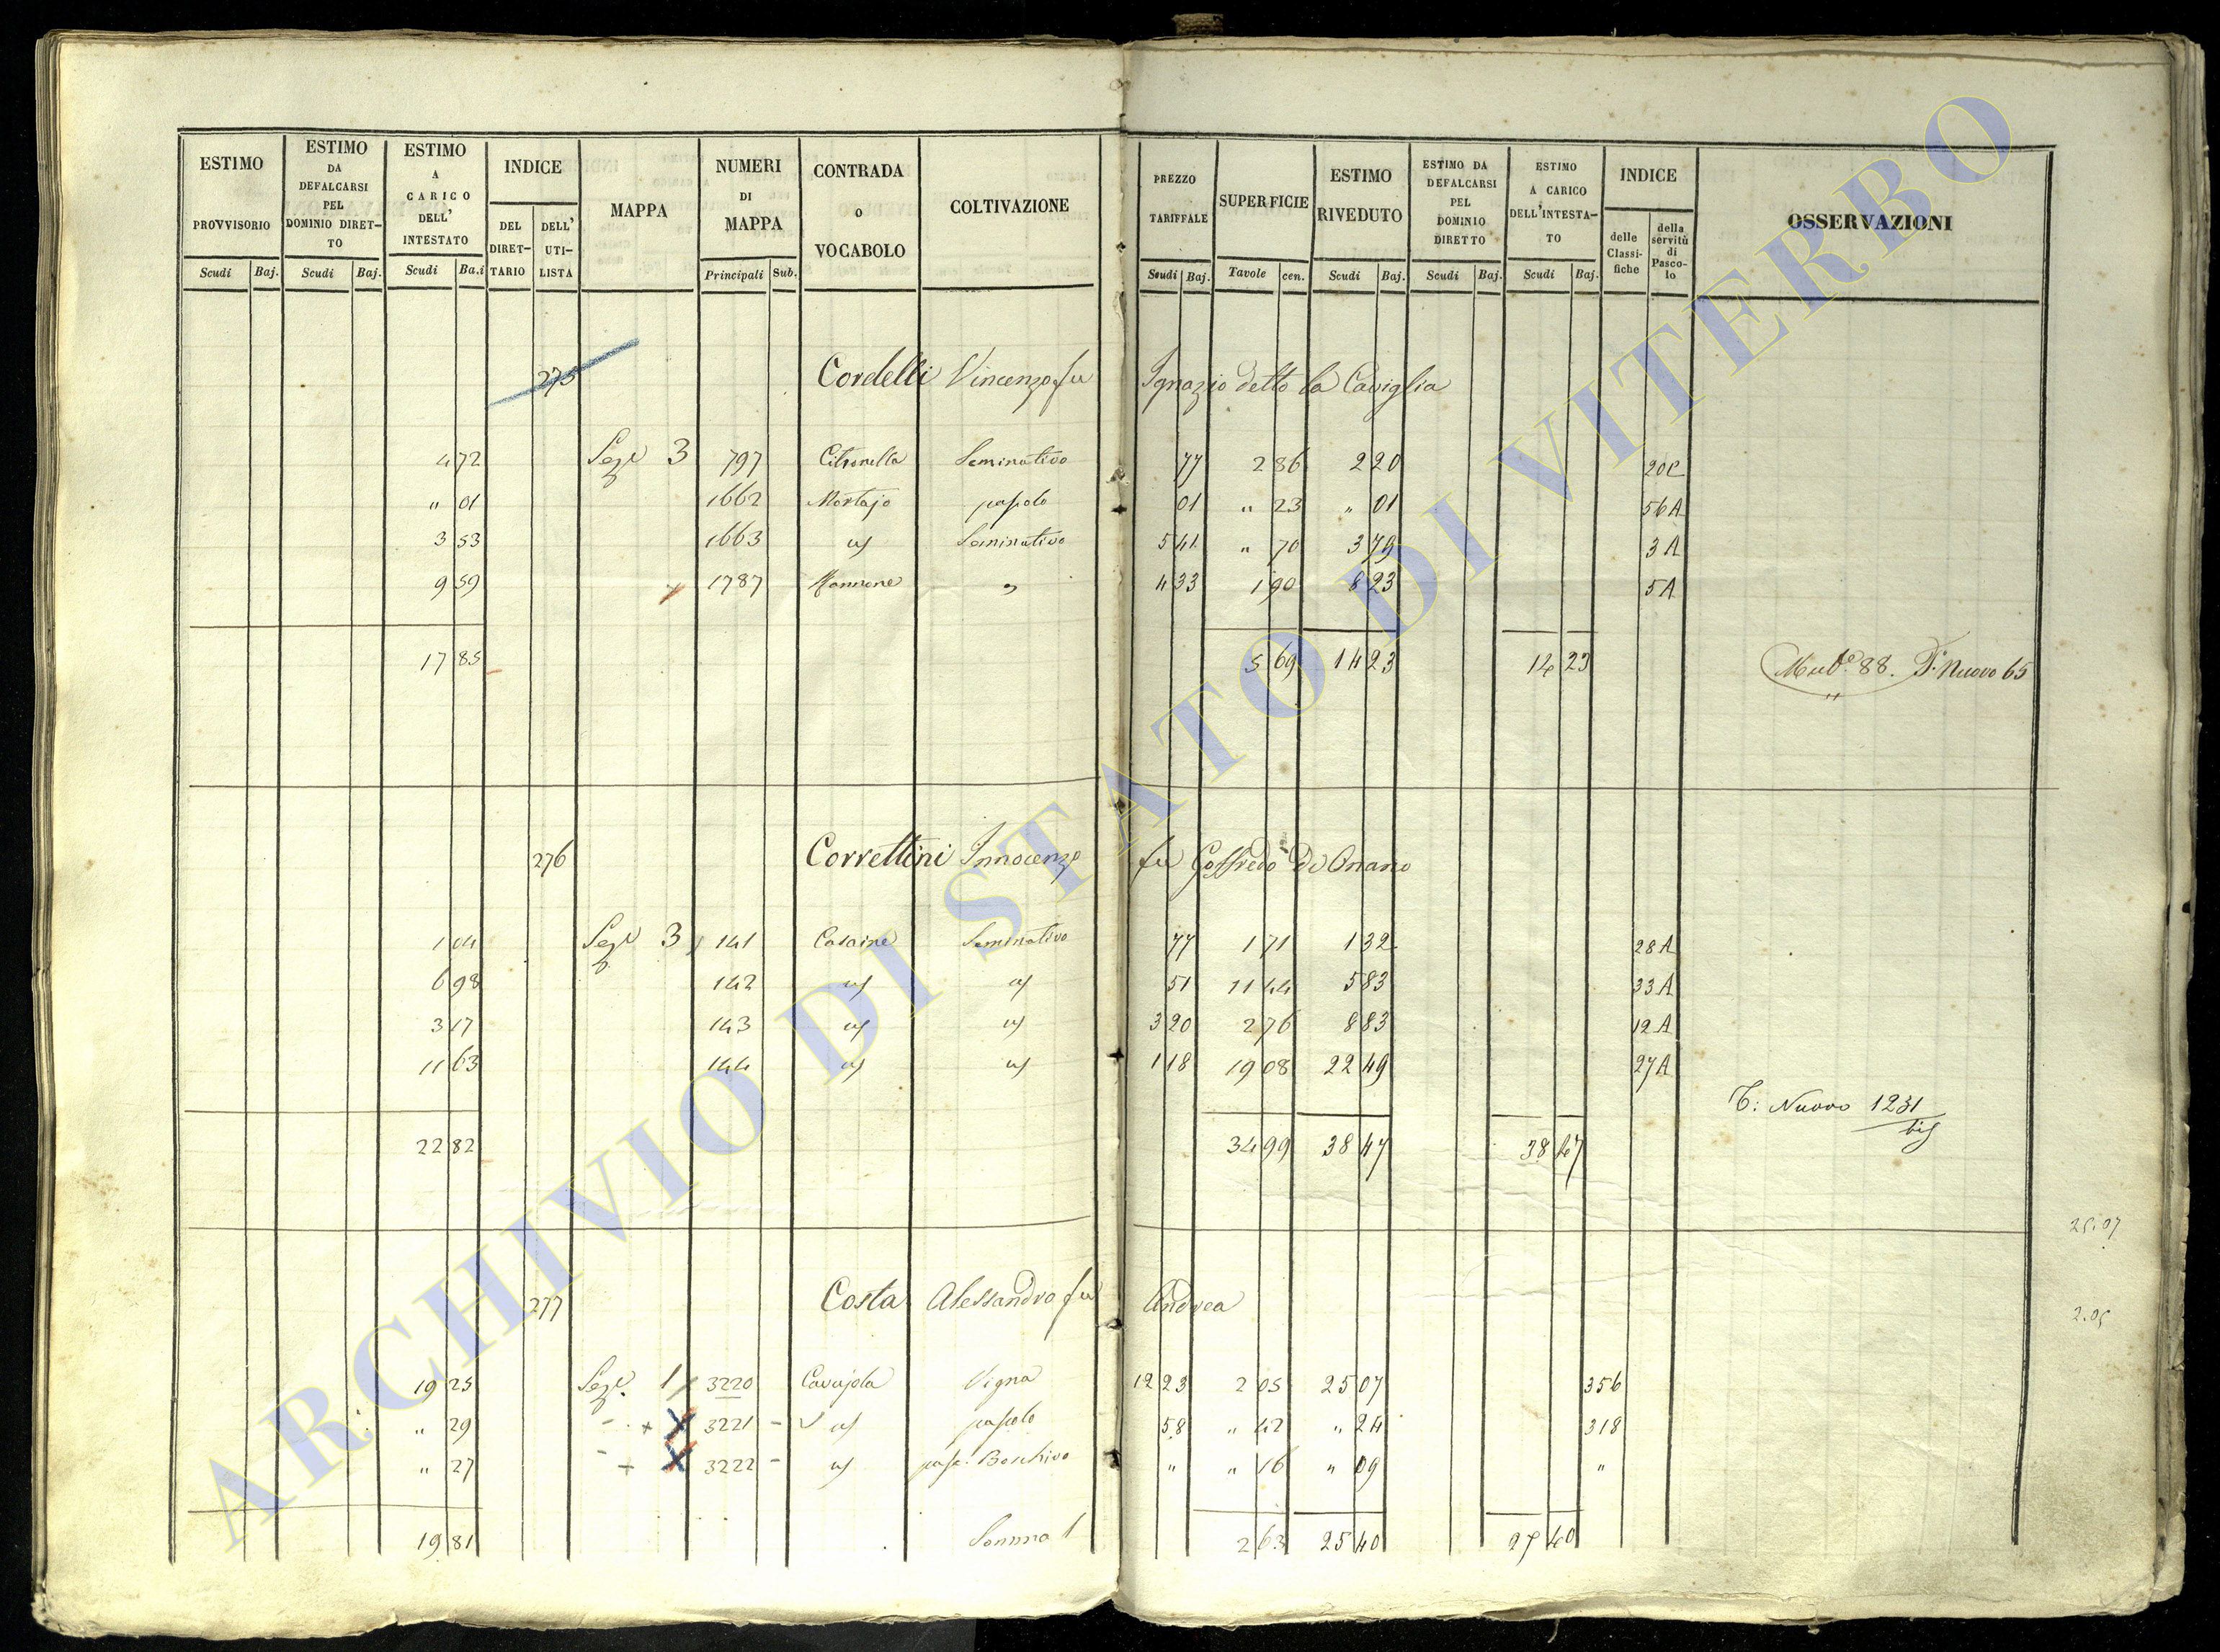 ESTIMO PROVVISORIO | ESTIMO DA DEFALCARSI PEL DOMINIO DIRET-TO | ESTIMO A CARICO DELL' INTESTATO | INDICE | MAPPA | NUMERI DI MAPPA | CONTRADA o VOCABOLO | COLTIVAZIONE | PREZZO TARIFFALE | SUPERFICIE | ESTIMO RIVEDUTO | ESTIMO DA DEFALCARSI PEL DOMINIO DIRETTO | ESTIMO A CARICO DELL'INTESTA-TO | INDICE | OSSERVAZIONI
DEL DIRET-TARIO | DELL' UTI-LISTA | delle Classi-fiche | della servitù di Pasco-lo
Scudi | Baj. | Scudi | Baj. | Scudi | Ba.i | Principali | Sub. | Scudi | Baj. | Tavole | cen. | Scudi | Baj. | Scudi | Baj. | Scudi | Baj.
275 Cordelli Vincenzo fu Ignazio detto la Caviglia
4 72 Sez.e 3 797 Citronella Seminativo 77 2 86 2 20 20C
" 01 1662 Mortajo pascolo 01 " 23 " 01 56A
3 53 1663 id Seminativo 5 41 " 70 3 79 3A
9 59 1787 " 4 33 1 90 8 23 5A
17 85 5 69 14 23 14 23 88. T. Nuovo 65
"
276 Correttini Innocenzo fu Goffredo di Onano
1 04 Sez.e 3 141 Casaine Seminativo 77 1 71 1 32 28A
6 98 142 id id 51 11 44 5 83 33A
3 17 143 id id 3 20 2 76 8 83 12A
11 63 144 id id 1 18 19 08 22 49 27A
T: Nuovo 1231
bis
22 82 34 99 38 47 38 47
25.07
277 Costa Alessandro fu Andrea
2.05
19 25 Sez.e 1 3220 Cavajola Vigna 12 23 2 05 25 07 356
" 29 - + X 3221 - id pascolo 58 " 42 " 24 318
" 27 - + X 3222 - id pasc. Boschivo " " 16 " 09 "
19 81 Somma 1 2 63 25 40 25 40
ARCHIVIO DI STATO DI VITERBO